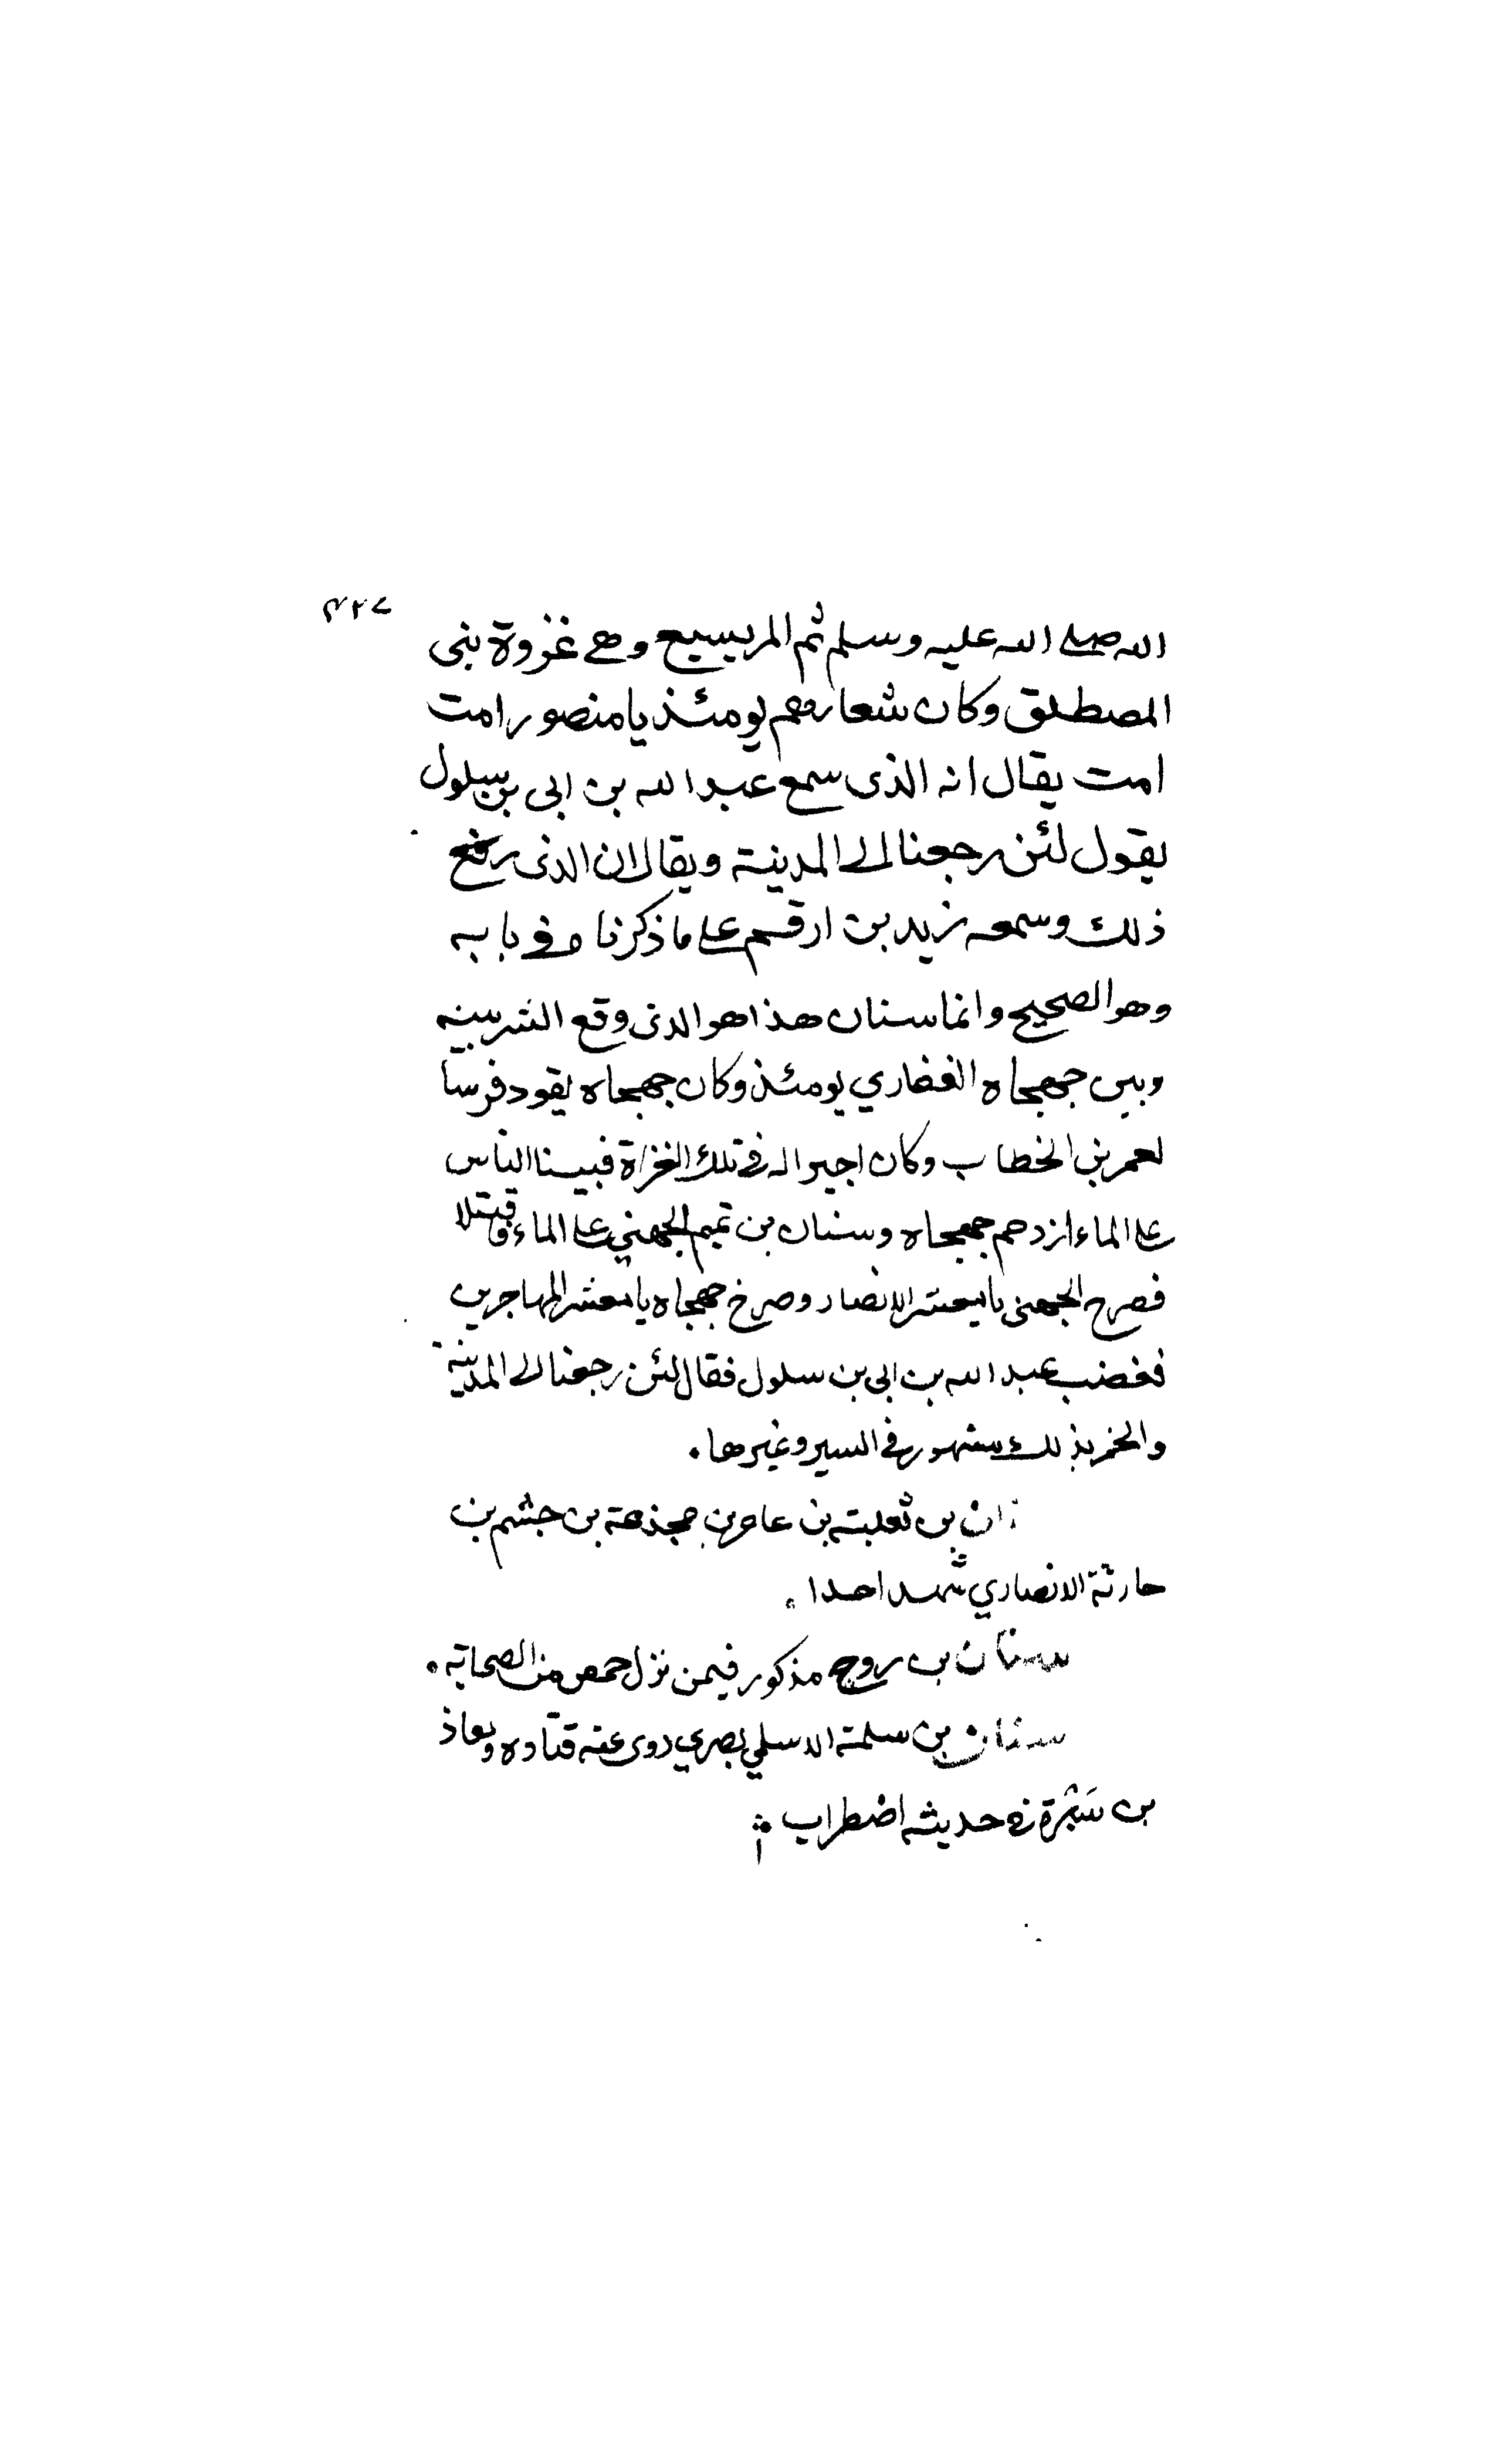 ٤٢٧
الله صلى الله عليه وسلم ثم المريسيع وهى غزوة بنى
المصطلق وكان شعارهم يومئذ يا منصور امت
امت يقال انه الذى سمع عبد الله بن ابى بن سلول
يقول لئن رجعنا الى المدينة ويقال ان الذى رفع
ذلك وسمعه زيد بن ارقم على ما ذكرناه فى بابه
وهو الصحيح وانما سنان هذا هو الذى وقع الشر بينه
وبين جهجاه الغفاري يومئذ وكان جهجاه يقود فرسا
لعمر بن الخطاب وكان اجيرا له فى تلك الغزاة فبينا الناس
على الماء ازدحم جهجاه وسنان بن تميم الجهني على الماء فاقتتلا
فصرخ الجهنى يا معشر الانصار وصرخ جهجاه يا معشر المهاجرين
فغضب عبد الله بن ابى بن سلول فقال لئن رجعنا الى المدينة
والخبر بذلك مشهور فى السير وغيرها .
ان بن ثعلبة بن عامر بن مجذعة بن جشم بن
حارثة الانصاري شهد احدا .
سنان بن روح مذكور فيمن نزل حمص من الصحابة .
سنان بن سلمة الاسلمي بصري روى عنه قتادة ومعاذ
بن سَبْرة فى حديثه اضطراب